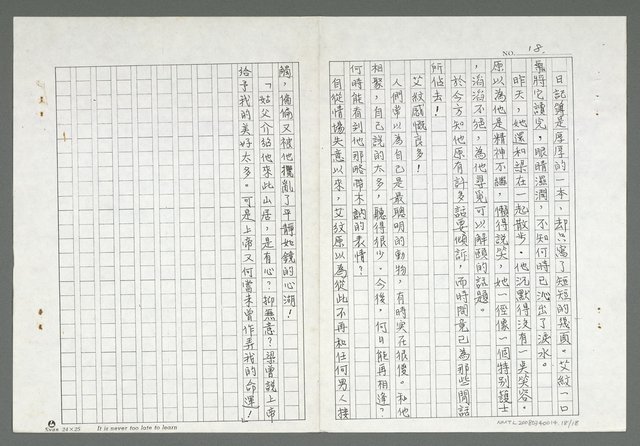 NO. 18.
日記簿是厚厚的一本，却只寫了短短的幾頁。艾紋一口
氣將它讀完，眼睛滋潤，不知何時已沁出了淚水。
昨天，她還和梁在一起散步。他沉默得沒有一臭笑容。
原以為他是精神不繼，懶得說笑，她一徑像一個特別護士
，滔滔不絕，為他尋覓可以解頤的話題。
於今方知他原有許多話要傾訴，而時間竟已為那些閒話
所佔去！
艾紋感慨良多！
人們常以為自己是最聰明的動物，有時実在很傻。和他
相聚，自己說的太多，聽得很少。今後，何日能再相逢？
何時能看到他那略帶木訥的表情？
自從情場失意以來，艾紋原以為從此不再和任何男人接
觸，偏偏又被他攪亂了平靜如鏡的心湖！
「姑父介紹他來此山居，是有心？抑無意？梁曾說上帝
給予我的美好太多。可是上帝又何嘗未曾作弄我的命運！」
Swan 24×25
It is never too late to learn
NMTL20080340014 18/18